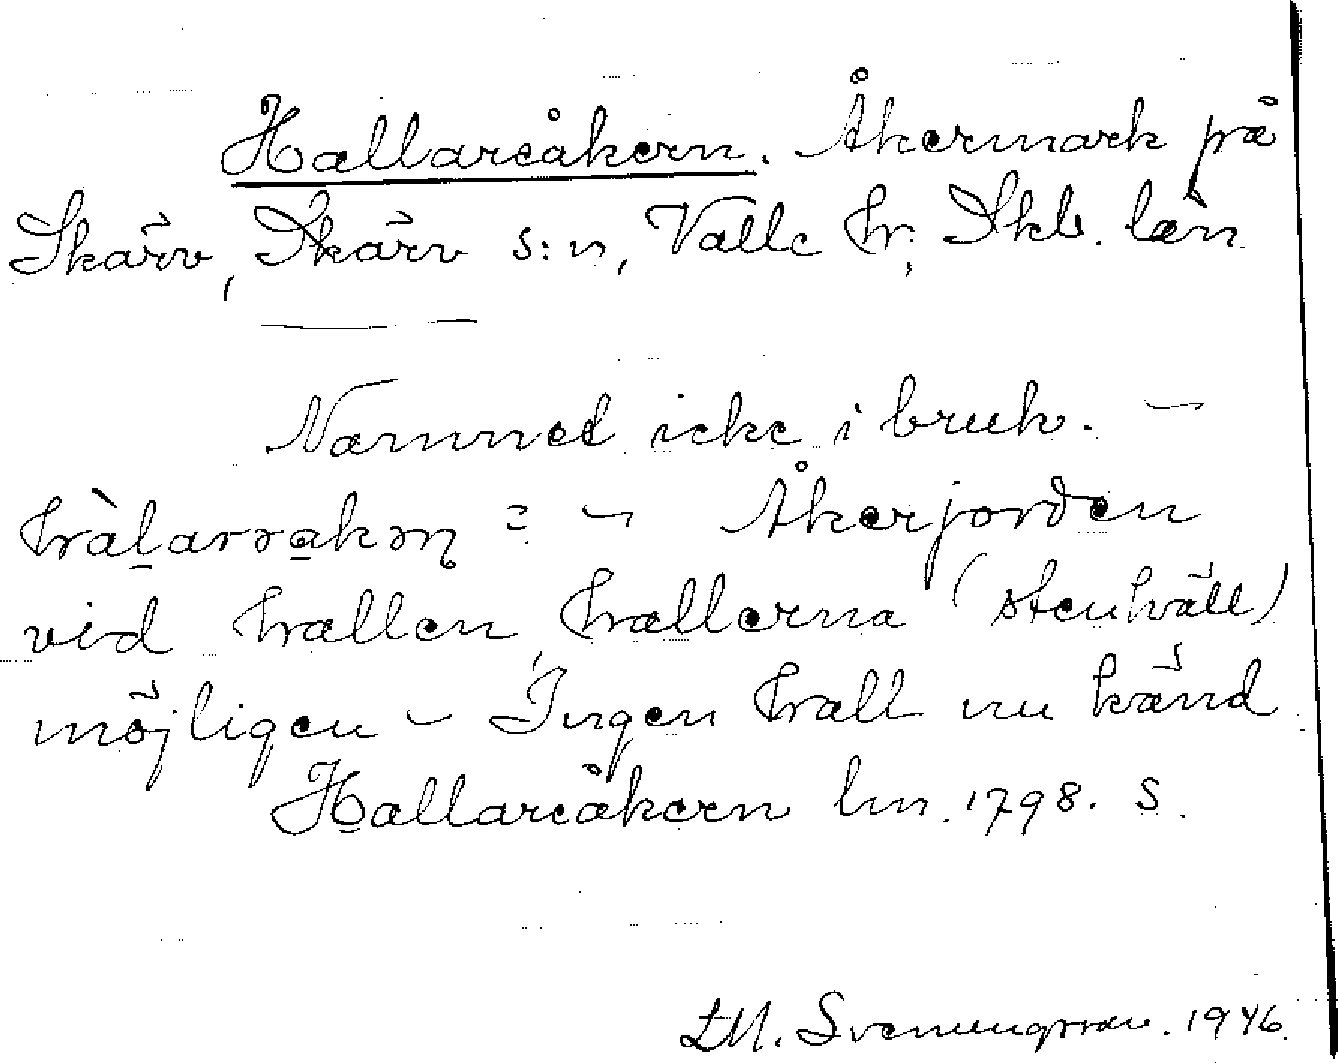 Hallareåkern. Åkermark på
Skärv, Skärv s:n, Valle hr; Skb. län
Namnet icke i bruk. –
? – Åkerjorden
vid hallen, hallerna (stenhäll)
möjligen – Ingen hall nu känd
Hallareåkern lm. 1798. S.
D.M. Svenungsson. 1946